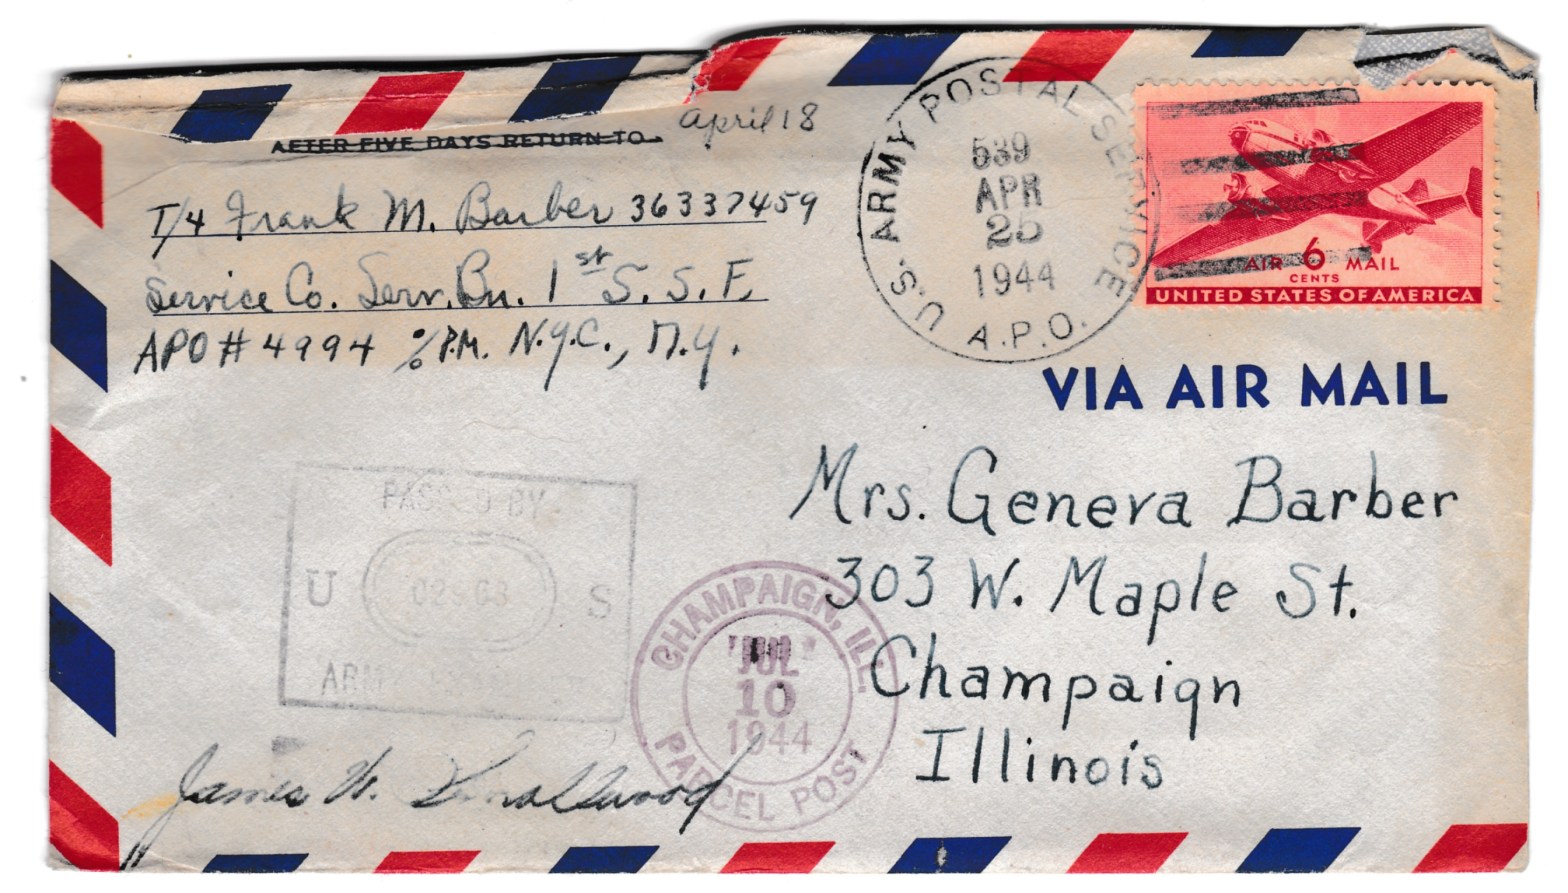 AFTER FIVE DAYS RETURN TO
April 18
T/4 Frank M. Barber 36337459
Service Co. Serv. Bn. 1st S. S. F.
APO # 4994 % P.M. N.Y.C., N.Y.
U.S. ARMY POSTAL SERVICE
539
APR
25
1944
A.P.O.
AIR 6 MAIL
CENTS
UNITED STATES OF AMERICA
VIA AIR MAIL
Mrs. Geneva Barber
303 W. Maple St.
Champaign
Illinois
PASSED BY
U S
ARMY EXAMINER
CHAMPAIGN, ILL.
JUL
10
1944
PARCEL POST
James W. Smallwood